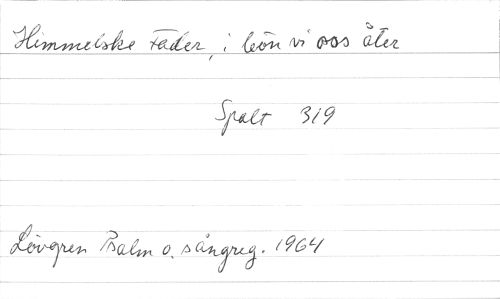 Himmelske Fader, i bön vi oss åter
Spalt 319
Lövgren Psalm o. sångreg. 1964